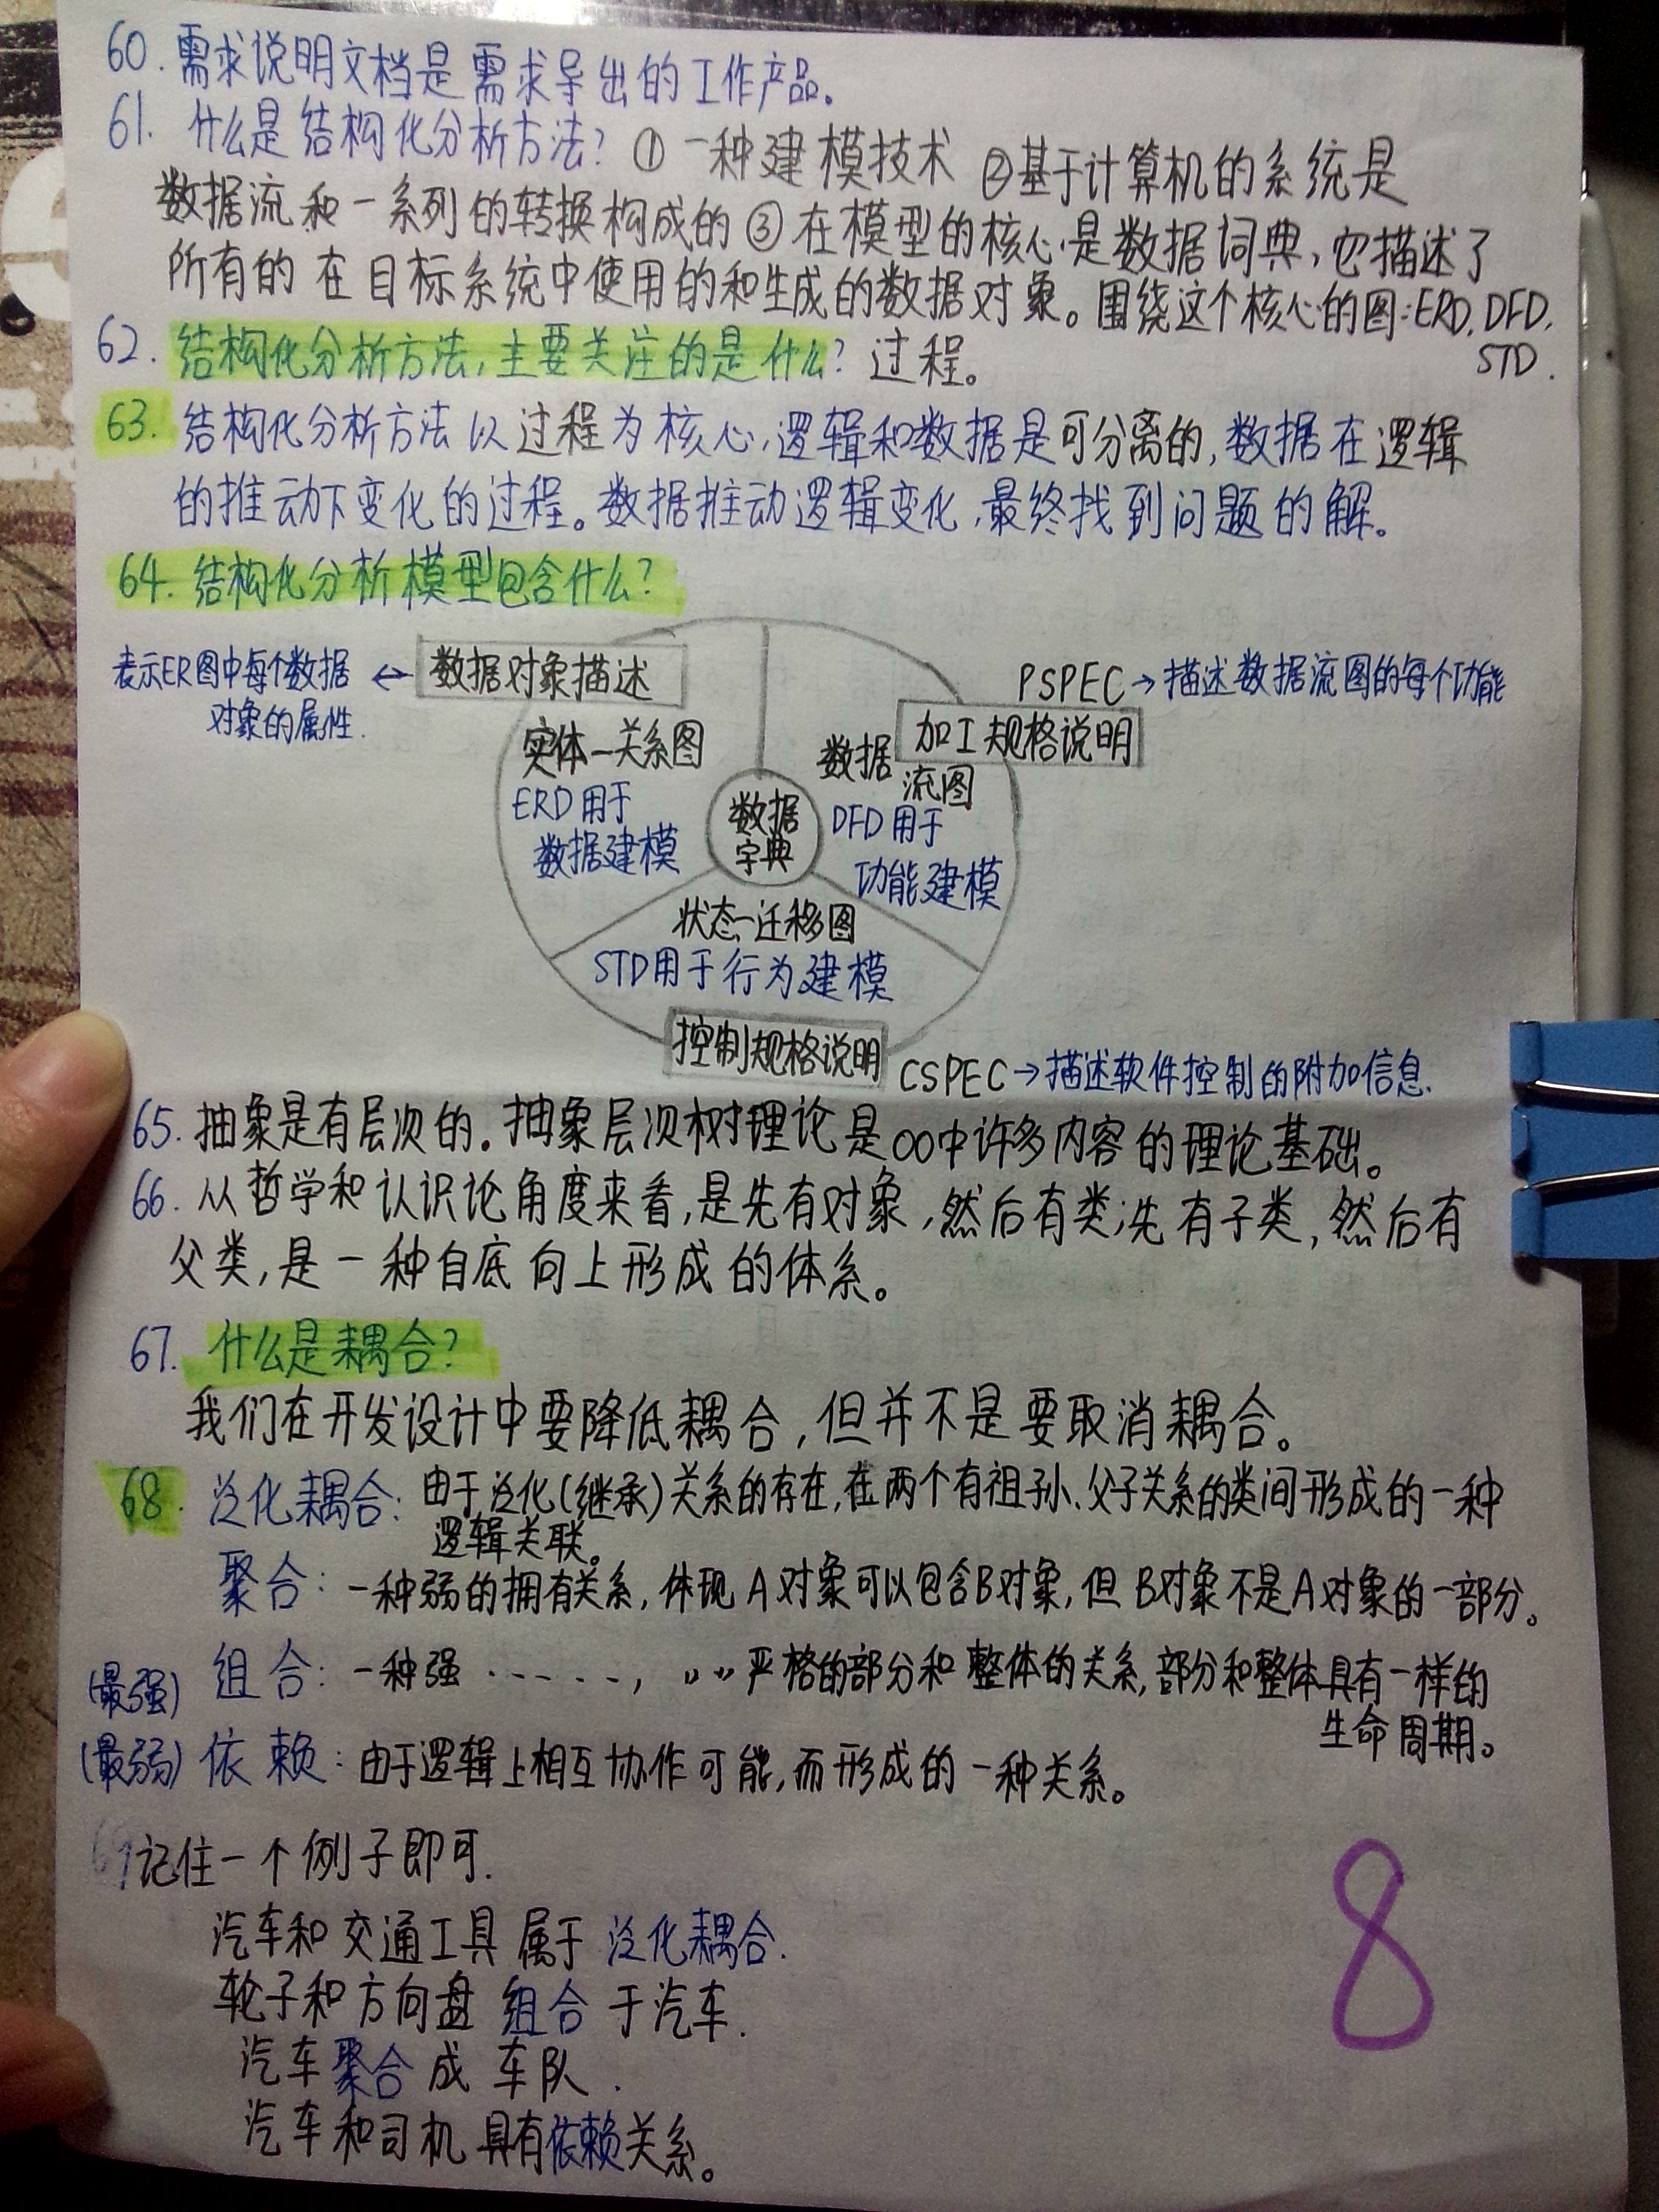 60. 需求说明文档是需求导出的工作产品。
61. 什么是结构化分析方法? ①一种建模技术 ②基于计算机的系统是
数据流和一系列的转换构成的 ③在模型的核心是数据词典, 它描述了
所有的在目标系统中使用的和生成的数据对象。围绕这个核心的图:ERD, DFD,
STD.
62. 结构化分析方法, 主要关注的是什么? 过程。
63. 结构化分析方法以过程为核心, 逻辑和数据是可分离的, 数据在逻辑
的推动下变化的过程。数据推动逻辑变化, 最终找到问题的解。
64. 结构化分析模型包含什么?
表示ER图中每个数据
对象的属性.
← 数据对象描述
PSPEC→描述数据流图的每个功能
加工规格说明
实体-关系图
ERD用于
数据建模
数据
流图
DFD用于
功能建模
数据
字典
状态-迁移图
STD用于行为建模
控制规格说明
CSPEC→描述软件控制的附加信息.
65. 抽象是有层次的。抽象层次树理论是OO中许多内容的理论基础。
66. 从哲学和认识论角度来看, 是先有对象, 然后有类; 先有子类, 然后有
父类, 是一种自底向上形成的体系。
67. 什么是耦合?
我们在开发设计中要降低耦合, 但并不是要取消耦合。
68. 泛化耦合: 由于泛化(继承)关系的存在, 在两个有祖子孙、父子关系的类间形成的一种
逻辑关联。
聚合: 一种弱的拥有关系, 体现A对象可以包含B对象, 但B对象不是A对象的一部分。
(最强) 组合: 一种强 ······, 〃〃严格的部分和整体的关系, 部分和整体具有一样的
生命周期。
(最弱) 依赖: 由于逻辑上相互协作可能, 而形成的一种关系。
69 记住一个例子即可.
汽车和交通工具属于泛化耦合.
轮子和方向盘组合于汽车.
汽车聚合成车队.
汽车和司机具有依赖关系。
8